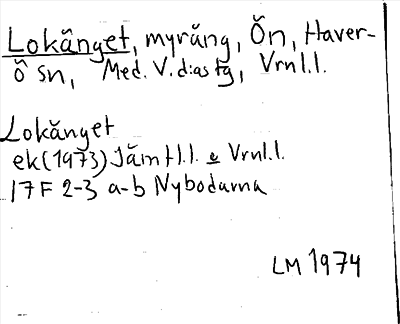 Lokänget, myräng, Ön, Haver-
ö sn, Med. V. dlastg, Vrml.l.
Lokänget
ek (1973) Jämtl.l. o Vrnl.l.
17F 2-3 a-b Nybodarna
LM 1974